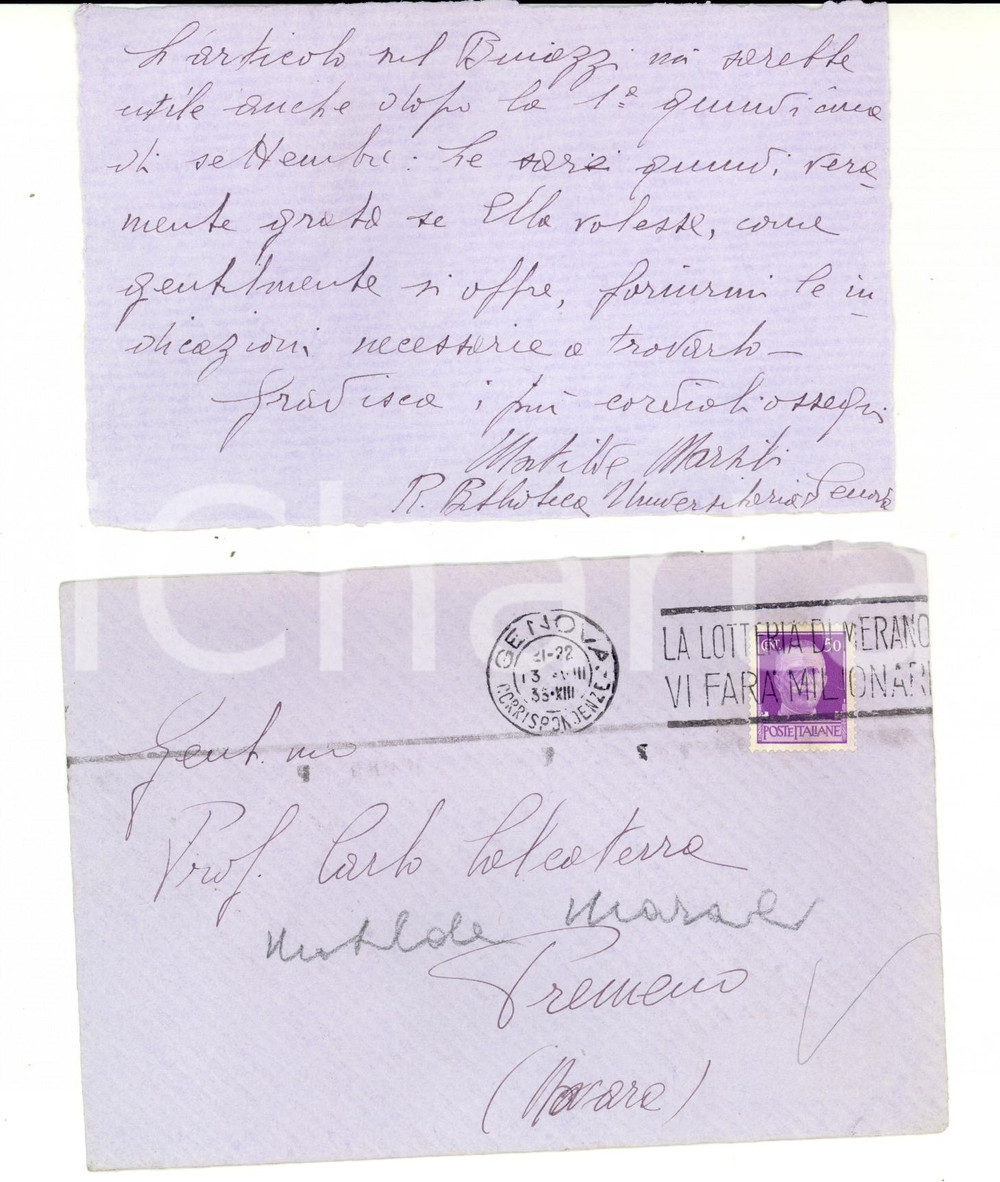 L'articolo sul mi sarebbe
utile anche dopo la 1ª quindicina
di settembre. Le sarei quindi vera-
mente grata se Ella volesse, come
gentilmente si offre, fornirmi le in-
dicazioni necessarie a trovarlo -
Gradisca i più cordiali ossequi
Matilde
R. Biblioteca Universitaria Genova
GENOVA
21-22
13 VIII
35-XIII
CORRISPONDENZE
LA LOTTERIA DI MERANO
VI FARA MILIONARI
CENT 50
POSTE ITALIANE
Gent.mo
Prof. Carlo Calcaterra
Matilde
Premeno
(Novara)